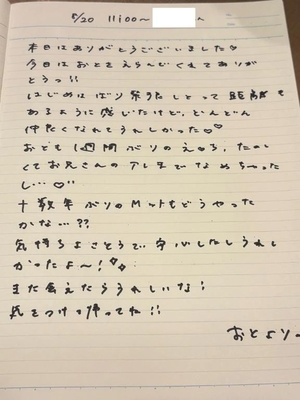 5/20 11:00〜 ん
本日はありがとうございました♡
今日はおとをえらんでくれてありが
とうっ!!
はじめはばり緊張しとって距離も
あるように感じたけど、どんどん
仲良くなれてうれしかった♡♡
おとも1週間ぶりのえ ろ、たのし
くてお兄さんのアレまでなめちゃった
し…♡
十数年ぶりのMットもどうやった
かな…??
気持ちよさそうで安心したしうれし
かったよ〜!
また会えたらうれしいな!
気をつけて帰ってね!!
おとより